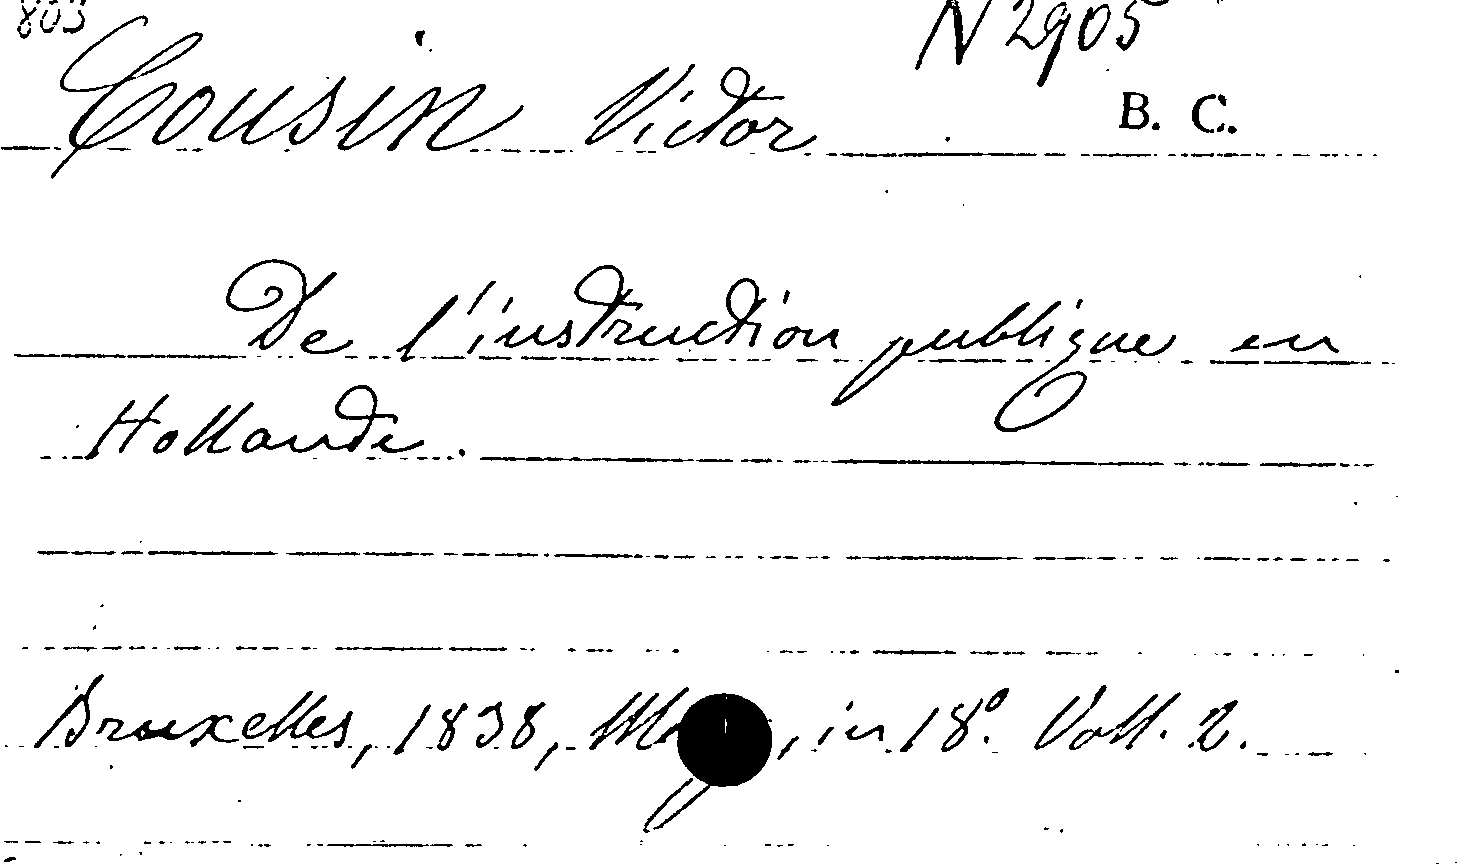 803
N 2905
Cousin Victor
B. C.
De l'instruction publique en
Hollande.
Bruxelles, 1838, in 18°. Voll. 2.